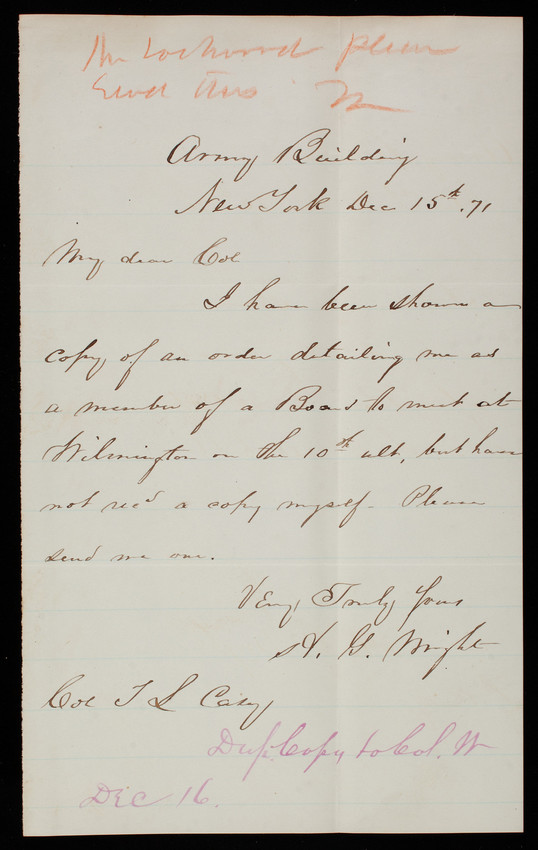 Mr Lockwood Please
Send this
Army Building
New York Dec 15th. 71
My dear Col
I have been shown a
copy of an order detailing me as
a member of a Board to meet at
Wilmington on the 10th ult, but have
not recd a copy myself - Please
send me one.
Very Truly Yours
H. G. Wright
Col T L Casey
Dup. Copy to Col. W
Dec 16.